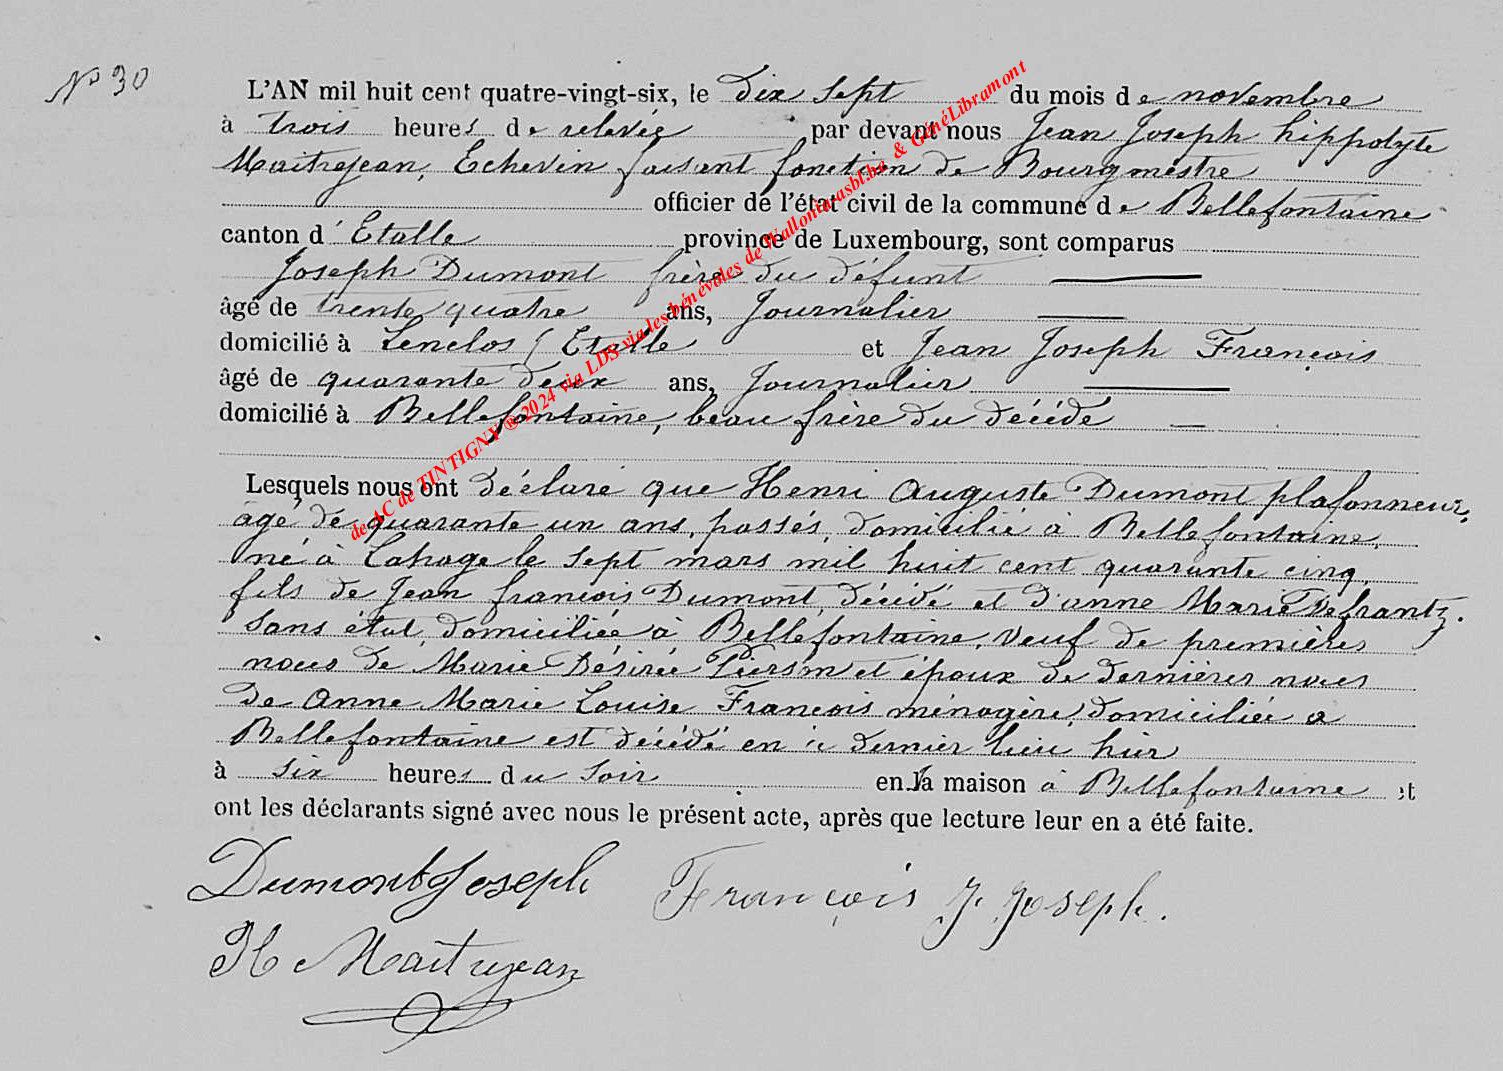 N° 30
L'AN mil huit cent quatre-vingt-six, le dix sept du mois de novembre
à trois heures de relevée par devant nous Jean Joseph hippolyte
Maitrejean, Echevin faisant fonction de Bourgmestre
officier de l'état civil de la commune de Bellefontaine
canton d'Etalle province de Luxembourg, sont comparus
Joseph Dumont frère du défunt
âgé de trente quatre ans, Journalier
domicilié à Lenclos / Etalle et Jean Joseph François
âgé de quarante deux ans, Journalier
domicilié à Bellefontaine, beau frère du décédé
Lesquels nous ont déclaré que Henri Auguste Dumont plafonneur,
agé de quarante un ans, passés, domicilié à Bellefontaine,
né à Lahage le sept mars mil huit cent quarante cinq,
fils de Jean françois Dumont, décédé et d'anne Marie Defrantz.
Sans état, domiciliée à Bellefontaine, Veuf de premières
noces de Marie Désirée Pierson et époux de dernières noces
de Anne Marie Louise François ménagère, domiciliée a
Bellefontaine est décédé en ce dernier lieu hier
à six heures du soir en la maison à Bellefontaine et
ont les déclarants signé avec nous le présent acte, après que lecture leur en a été faite.
Dumont Joseph François J. Joseph.
H Maitrejean
de AC de TINTIGNY ® 2024 via LDS via les bénévoles de Walloniaasbl.be & GénéLibramont